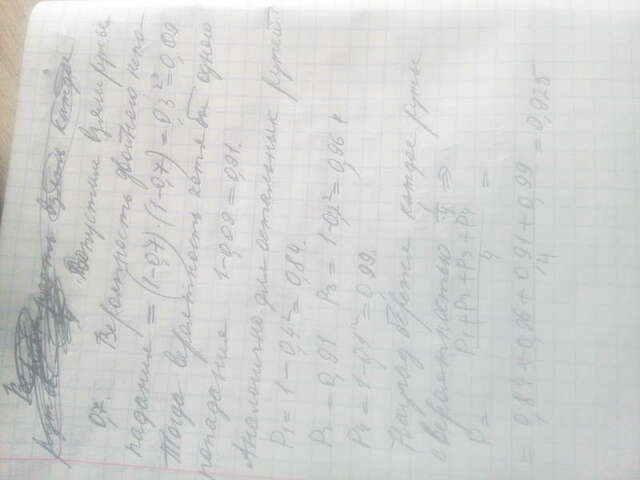 Допустим взяли ружье
0,7. Вероятность двойного непо-
падания = (1-0,7)·(1-0,7) = 0,3² = 0,09
Тогда вероятность хотя бы одного
попадания 1-0,09 = 0,91.
Аналогично для остальных ружей:
P₁ = 1 - 0,4² = 0,84.
P₂ = 0,91 P₃ = 1-0,2² = 0,96
P₄ = 1-0,1² = 0,99.
Наугад берём каждое ружье
с вероятностью 1/4 ⇒
P = P₁+P₂+P₃+P₄ / 4 =
= 0,84+0,96+0,91+0,99 / 4 = 0,925